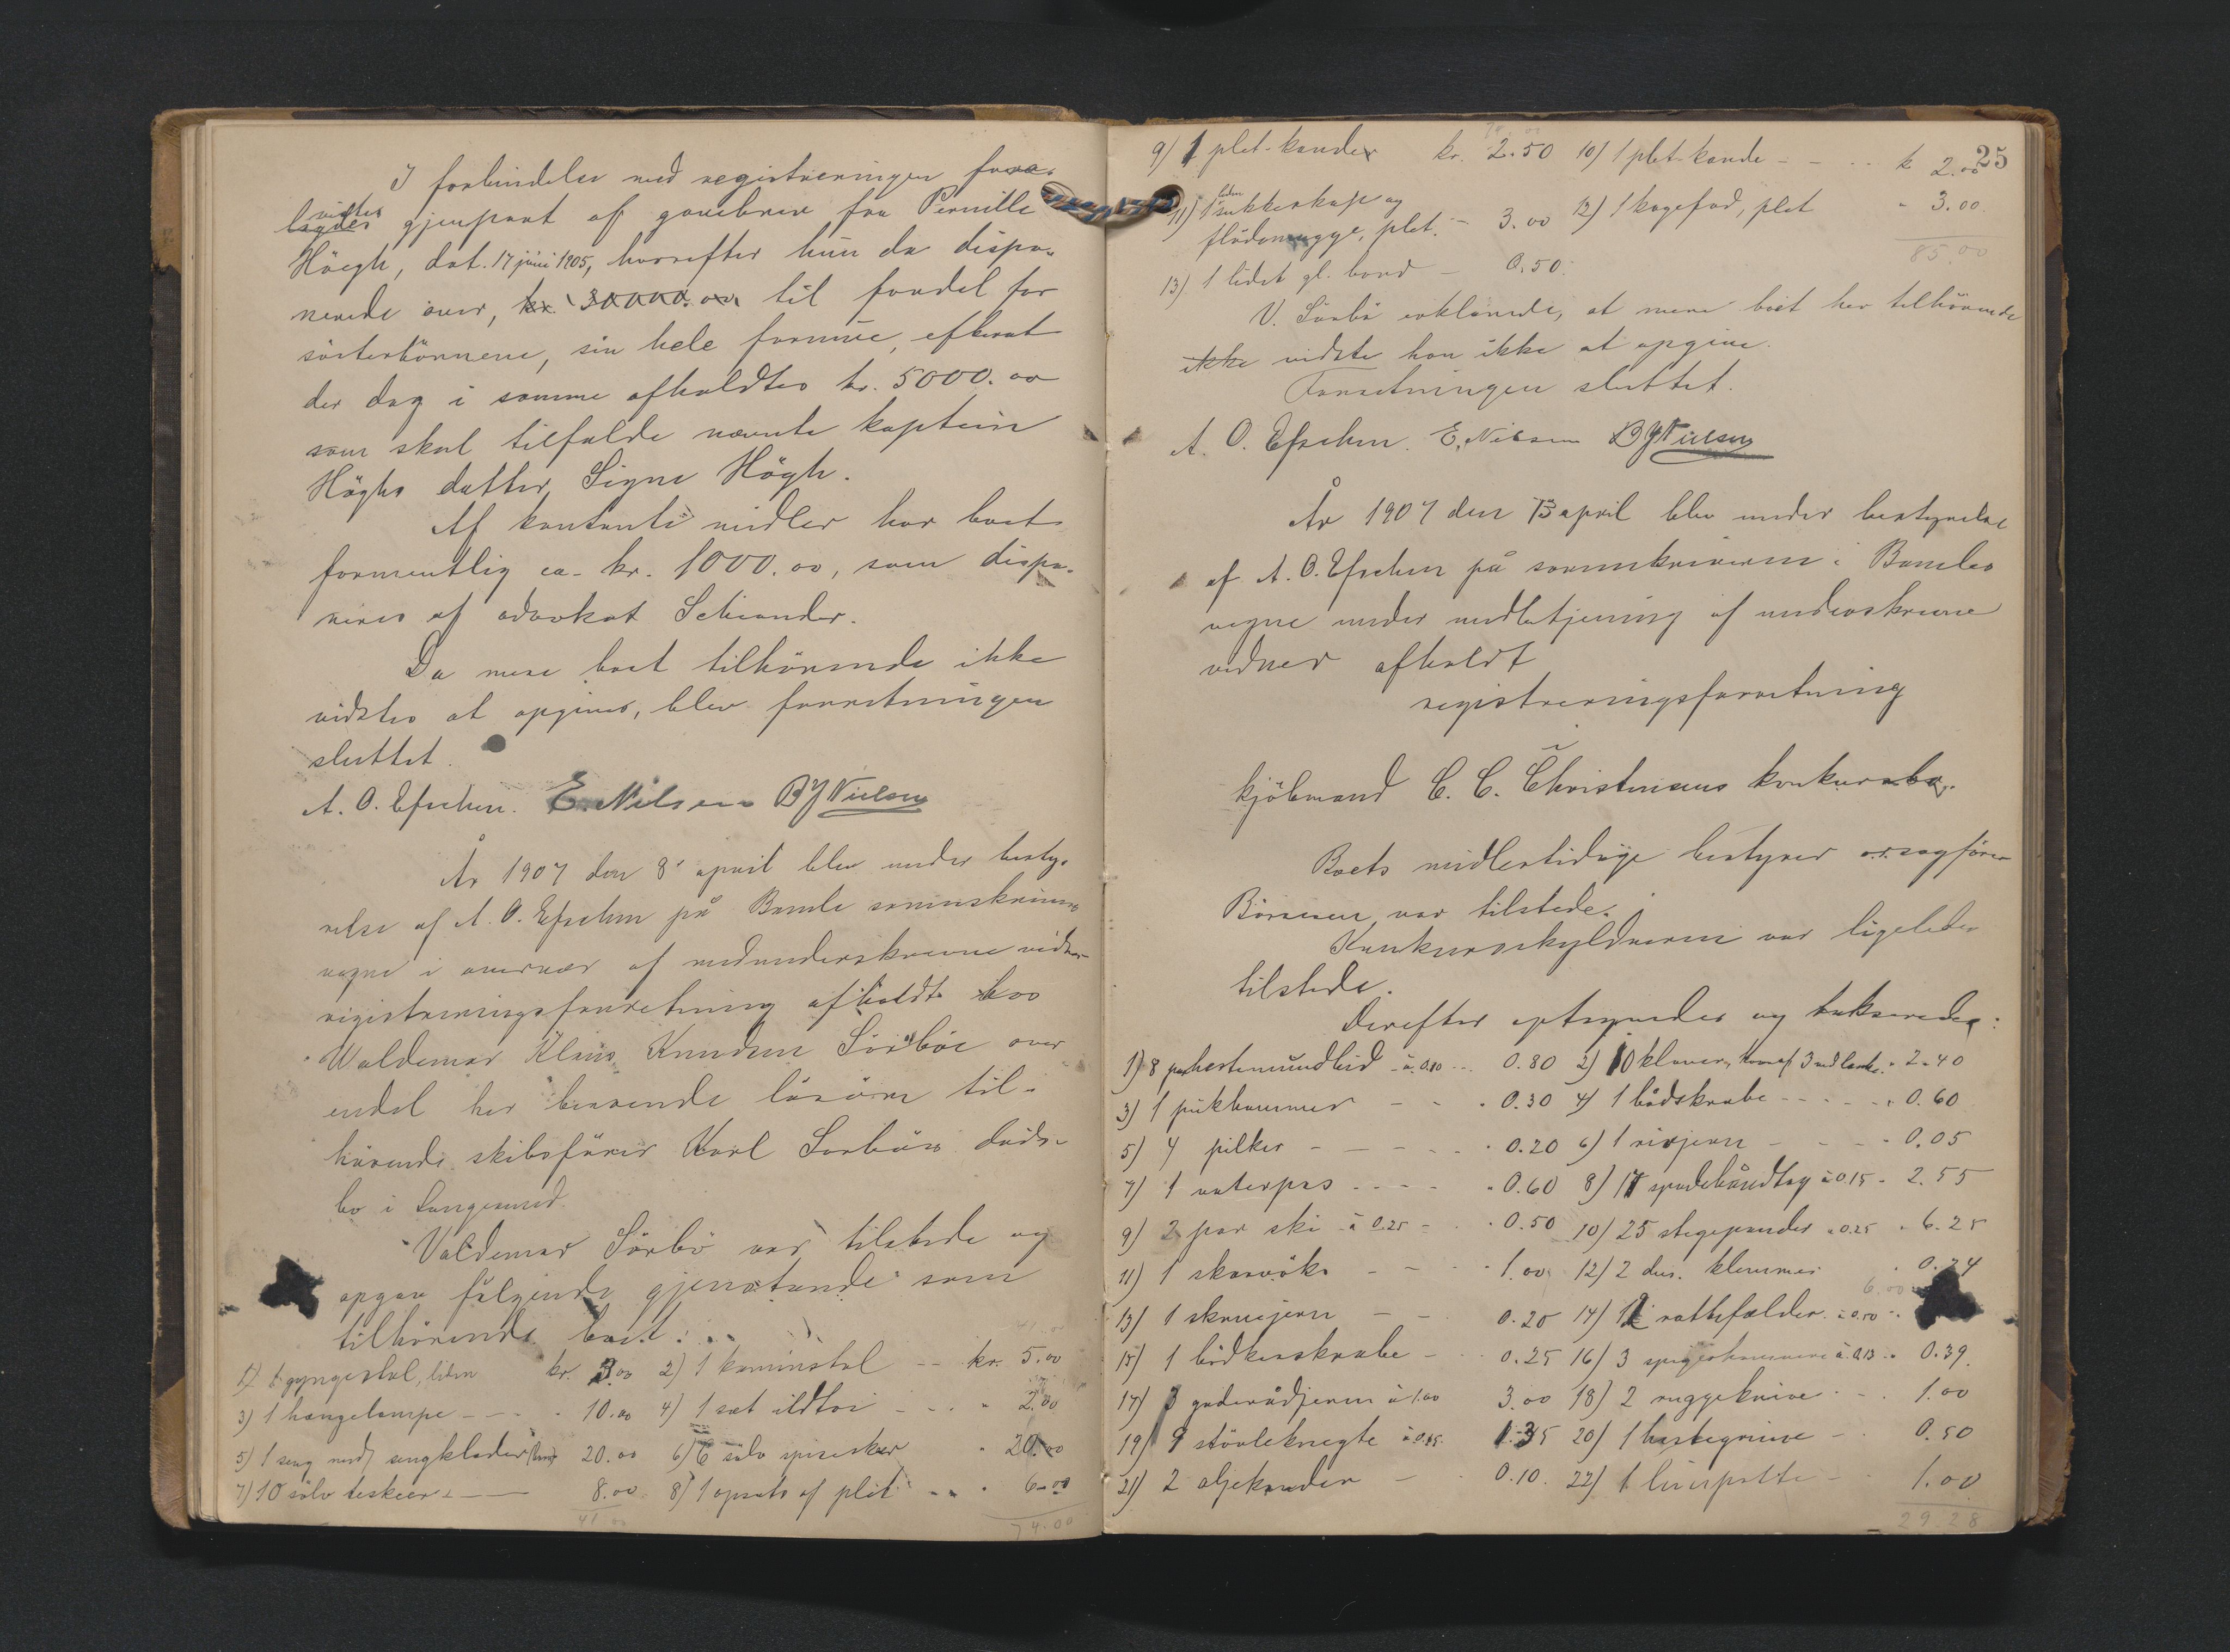 I forbindelse med registreringen frem-
vistes
lagdes gjenpart af gavebrev fra Pernille
Høegh, dat. 17 juni 1905, hvorefter hun da dispo-
nerede over, kr. 30000.00 til fordel for
søsterbørnene, sin hele formue, efterat
der dog i samme afholdtes kr. 5000.00
som skal tilfalde nævnte kaptein
Høghs datter Signe Högh.
Af kontante midler har boet
formentlig ca. kr. 1000.00, som dispo-
neres af advokat Schiander.
Da mere boet tilhörende ikke
vidstes at opgives, blev forretningen
sluttet.
A. O. Efschen. E. Nilsen BJ Nielsen
År 1907 den 8' april blev under besty-
relse af A. O. Efschen på Bamle sorenskrivers
vegne i overvær af medunderskrevne vidner
registreringsforretning afholdt hos
Waldemar Klaus Knudsen Sörböe over
endel her beroende lösöre til-
hörende skibsförer Karl Sorböes döds-
bo i Langesund.
Valdemar Sörbö var tilstede og
opgav fölgende gjenstande som
tilhörende boet:
1) 1 gyngestol, liden kr. 3.00 2) 1 kaminstol -- kr. 5.00
3) 1 hængelampe - - - 10.00 4) 1 sæt ildtöi - - - " 2.00
5) 1 seng med sengklæder 20.00 6) 6 sölv spiseskeer " 20.00
7) 10 sölv teskeer - 8.00 8) 1 opsats af plet - - " 6.00
41.00 74.00
25
9) 1 plet-kander kr. 2.50 10) 1 plet-kande - - - k 2.00
liden
11) 1 sukkerskap og
flödemugge, plet. - 3.00 12) 1 kagefad, plet " 3.00
85.00
13) 1 lidet gl. bord - 0.50.
V. Sörbö erklærede, at mere boet her tilhörende
ikke vidste han ikke at opgive.
Forretningen sluttet.
A. O. Efschen. E. Nilsen BJ Nielsen
År 1907 den 13 april blev under bestyrelse
af A. O. Efschen på sorenskriveren i Bambles
vegne under medbetjening af underskrevne
vidner afholdt
registreringsforretning
i
kjöbmand C. C. Christensens konkursbo.
Boets midlertidige bestyrer o.r.sagförer
Börresen var tilstede.
Konkursskyldneren var ligeledes
tilstede.
Derefter optegnedes og takseredes:
1) 8 par hestemundbid - à 0.10 -- 0.80 2) 10 klaver, hvoraf 3 med lænke. " 2.40
3) 1 pukhammer - - " 0.30 4) 1 bådskrabe - - - - " 0.60
5) 4 pilker - - - - " 0.20 6) 1 rivjern - - - - " 0.05
7) 1 vaterpas - - - - " 0.60 8) 17 spadehåndtag à 0.15 - 2.55
9) 2 par ski - à 0.25 - " 0.50 10) 25 stegepander à 0.25 " 6.25
11) 1 skovöks - - - 1.00 12) 2 dus. klemmer " 0.24
6.00
13) 1 skruejern - - 0.20 14) 12 rottefælder. à 0.50 -
15) 1 bödkerskrabe - - 0.25 16) 3 spigerhammere à 0.13 " 0.39
17) 3 à 1.00 3.00 18) 2 ryggeknive - - 1.00
19) 9 stövleknegte à 0.15 1.35 20) 1 hestegrime - 0.50
21) 2 oljekander - 0.10. 22) 1 limpotte - 1.00
29.28